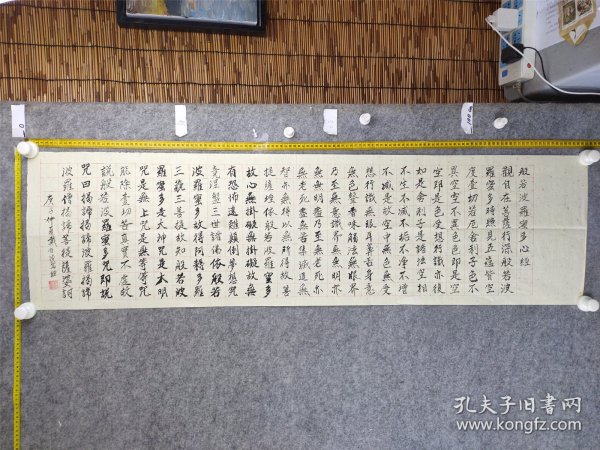 般若波羅蜜多心經
觀自在菩薩行深般若波
羅蜜多時照見五蘊皆空
度壹切苦厄舍利子色不
異空空不異色色即是空
空即是色受想行識亦復
如是舍利子是諸法空相
不生不滅不垢不淨不增
不減是故空中無色無受
想行識無眼耳鼻舌身意
無色聲香味觸法無眼界
乃至無意識界無無明亦
無無明盡乃至無老死亦
無老死盡無苦集滅道無
智亦無得以無所得故菩
提薩埵依般若波羅蜜多
故心無掛礙無掛礙故無
有恐怖遠離顛倒夢想究
竟涅槃三世諸佛依般若
波羅蜜多故得阿耨多羅
三藐三菩提故知般若波
羅蜜多是大神咒是大明
咒是無上咒是無等等咒
能除壹切苦真實不虛故
說般若波羅蜜多咒即說
咒曰揭諦揭諦波羅揭諦
波羅僧揭諦菩提薩婆訶
庚子仲夏
孔夫子旧书网
www.kongfz.com